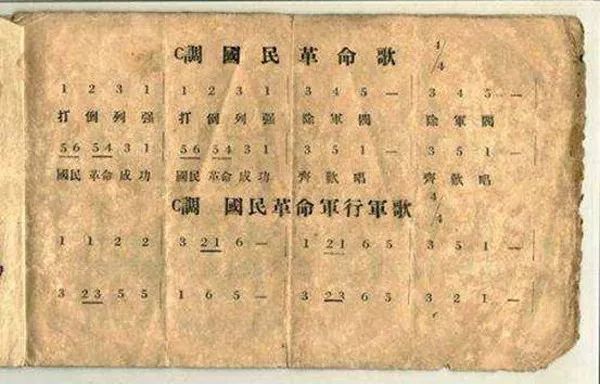 C調 國民革命歌 4/4
1 2 3 1 | 1 2 3 1 | 3 4 5 — | 3 4 5 — |
打倒列强 打倒列强 除軍閥 除軍閥
56 54 3 1 | 56 54 3 1 | 3 5 1 — | 3 5 1 — |
國民革命成功 國民革命成功 齊歡唱 齊歡唱
C調 國民革命軍行軍歌 4/4
1 1 2 2 | 3 21 6 — | 1 21 6 5 | 3 5 1 — |
3 23 5 5 | 1 6 5 — | 3 23 6 5 | 3 2 1 — |